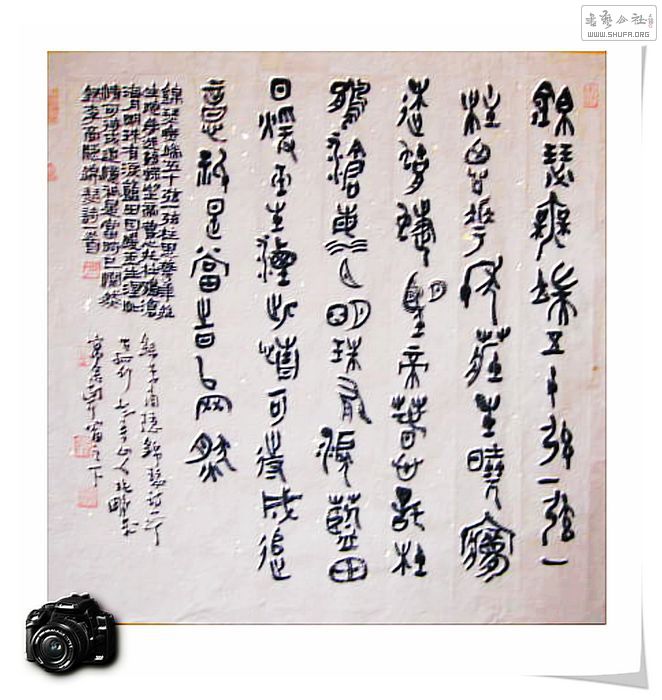 書藝公社
WWW.SHUFA.ORG
錦瑟無端五十弦一弦一
柱思華年莊生曉夢
迷蝴蝶望帝春心託杜
鵑滄海月明珠有淚藍田
日暖玉生煙此情可待成追
憶祇是當時已惘然
錦瑟無端五十弦一弦一柱思華年莊
生曉夢迷蝴蝶望帝春心託杜鵑滄
海月明珠有淚藍田日暖玉生煙此
情可待成追憶祇是當時已惘然
錄李商隱錦瑟詩一首
錄李商隱錦瑟詩一
窗之下